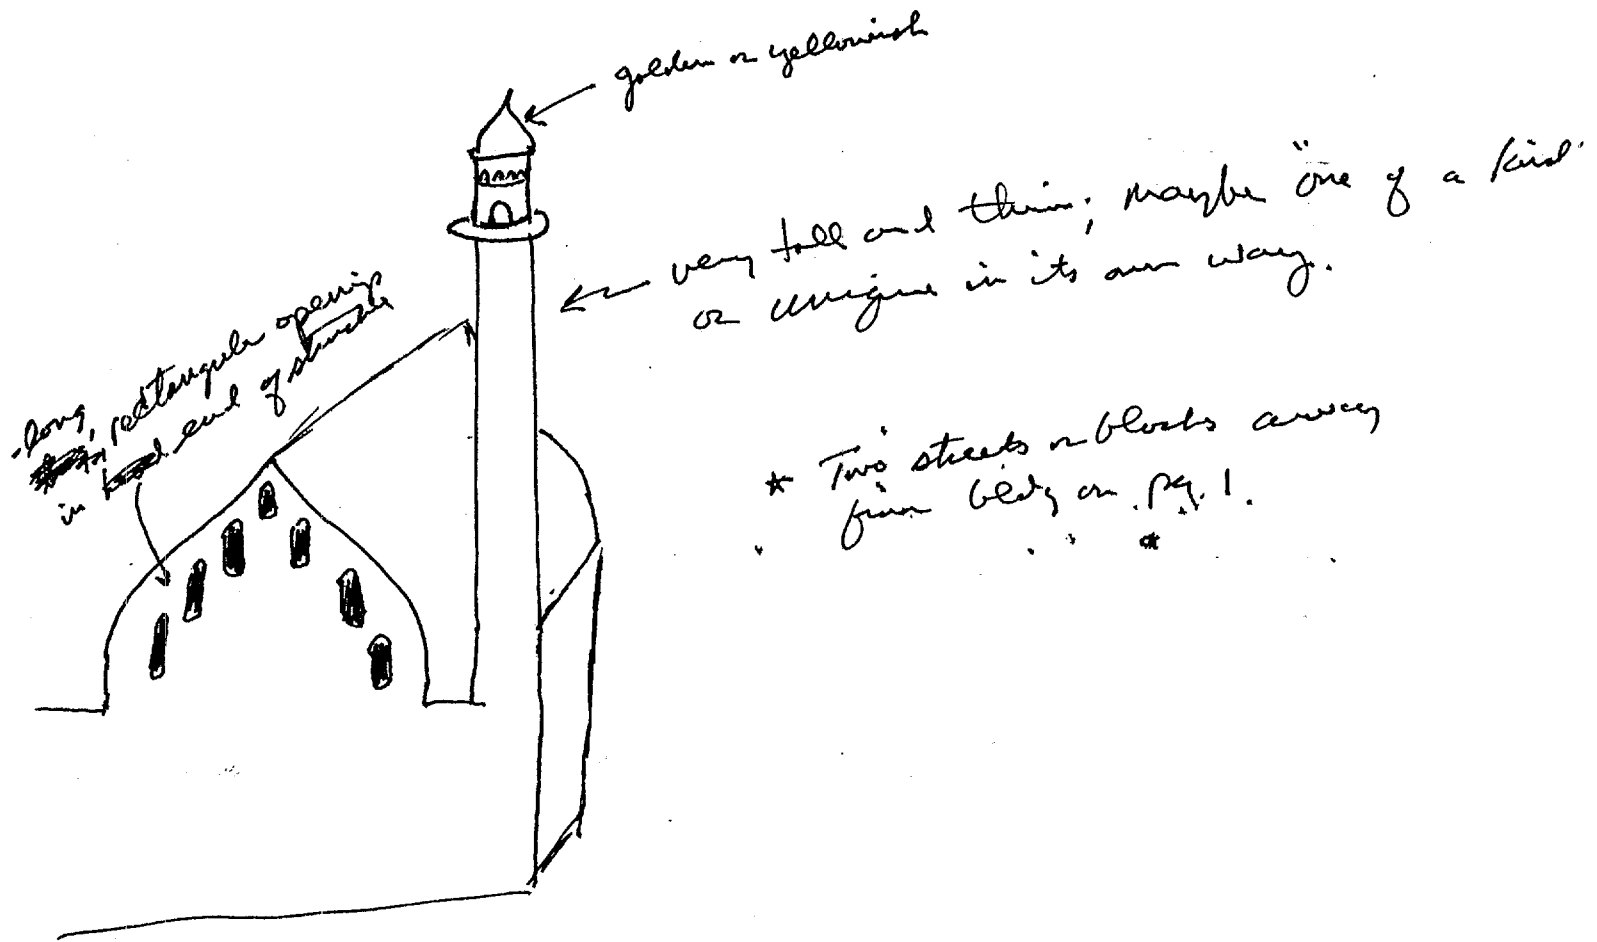 golden or yellowish
very tall and thin; maybe "one of a kind"
or unique in its own way.
- long, rectangular openings
in end of structure
* Two streets or blocks away
from bldg on pg. 1.
*